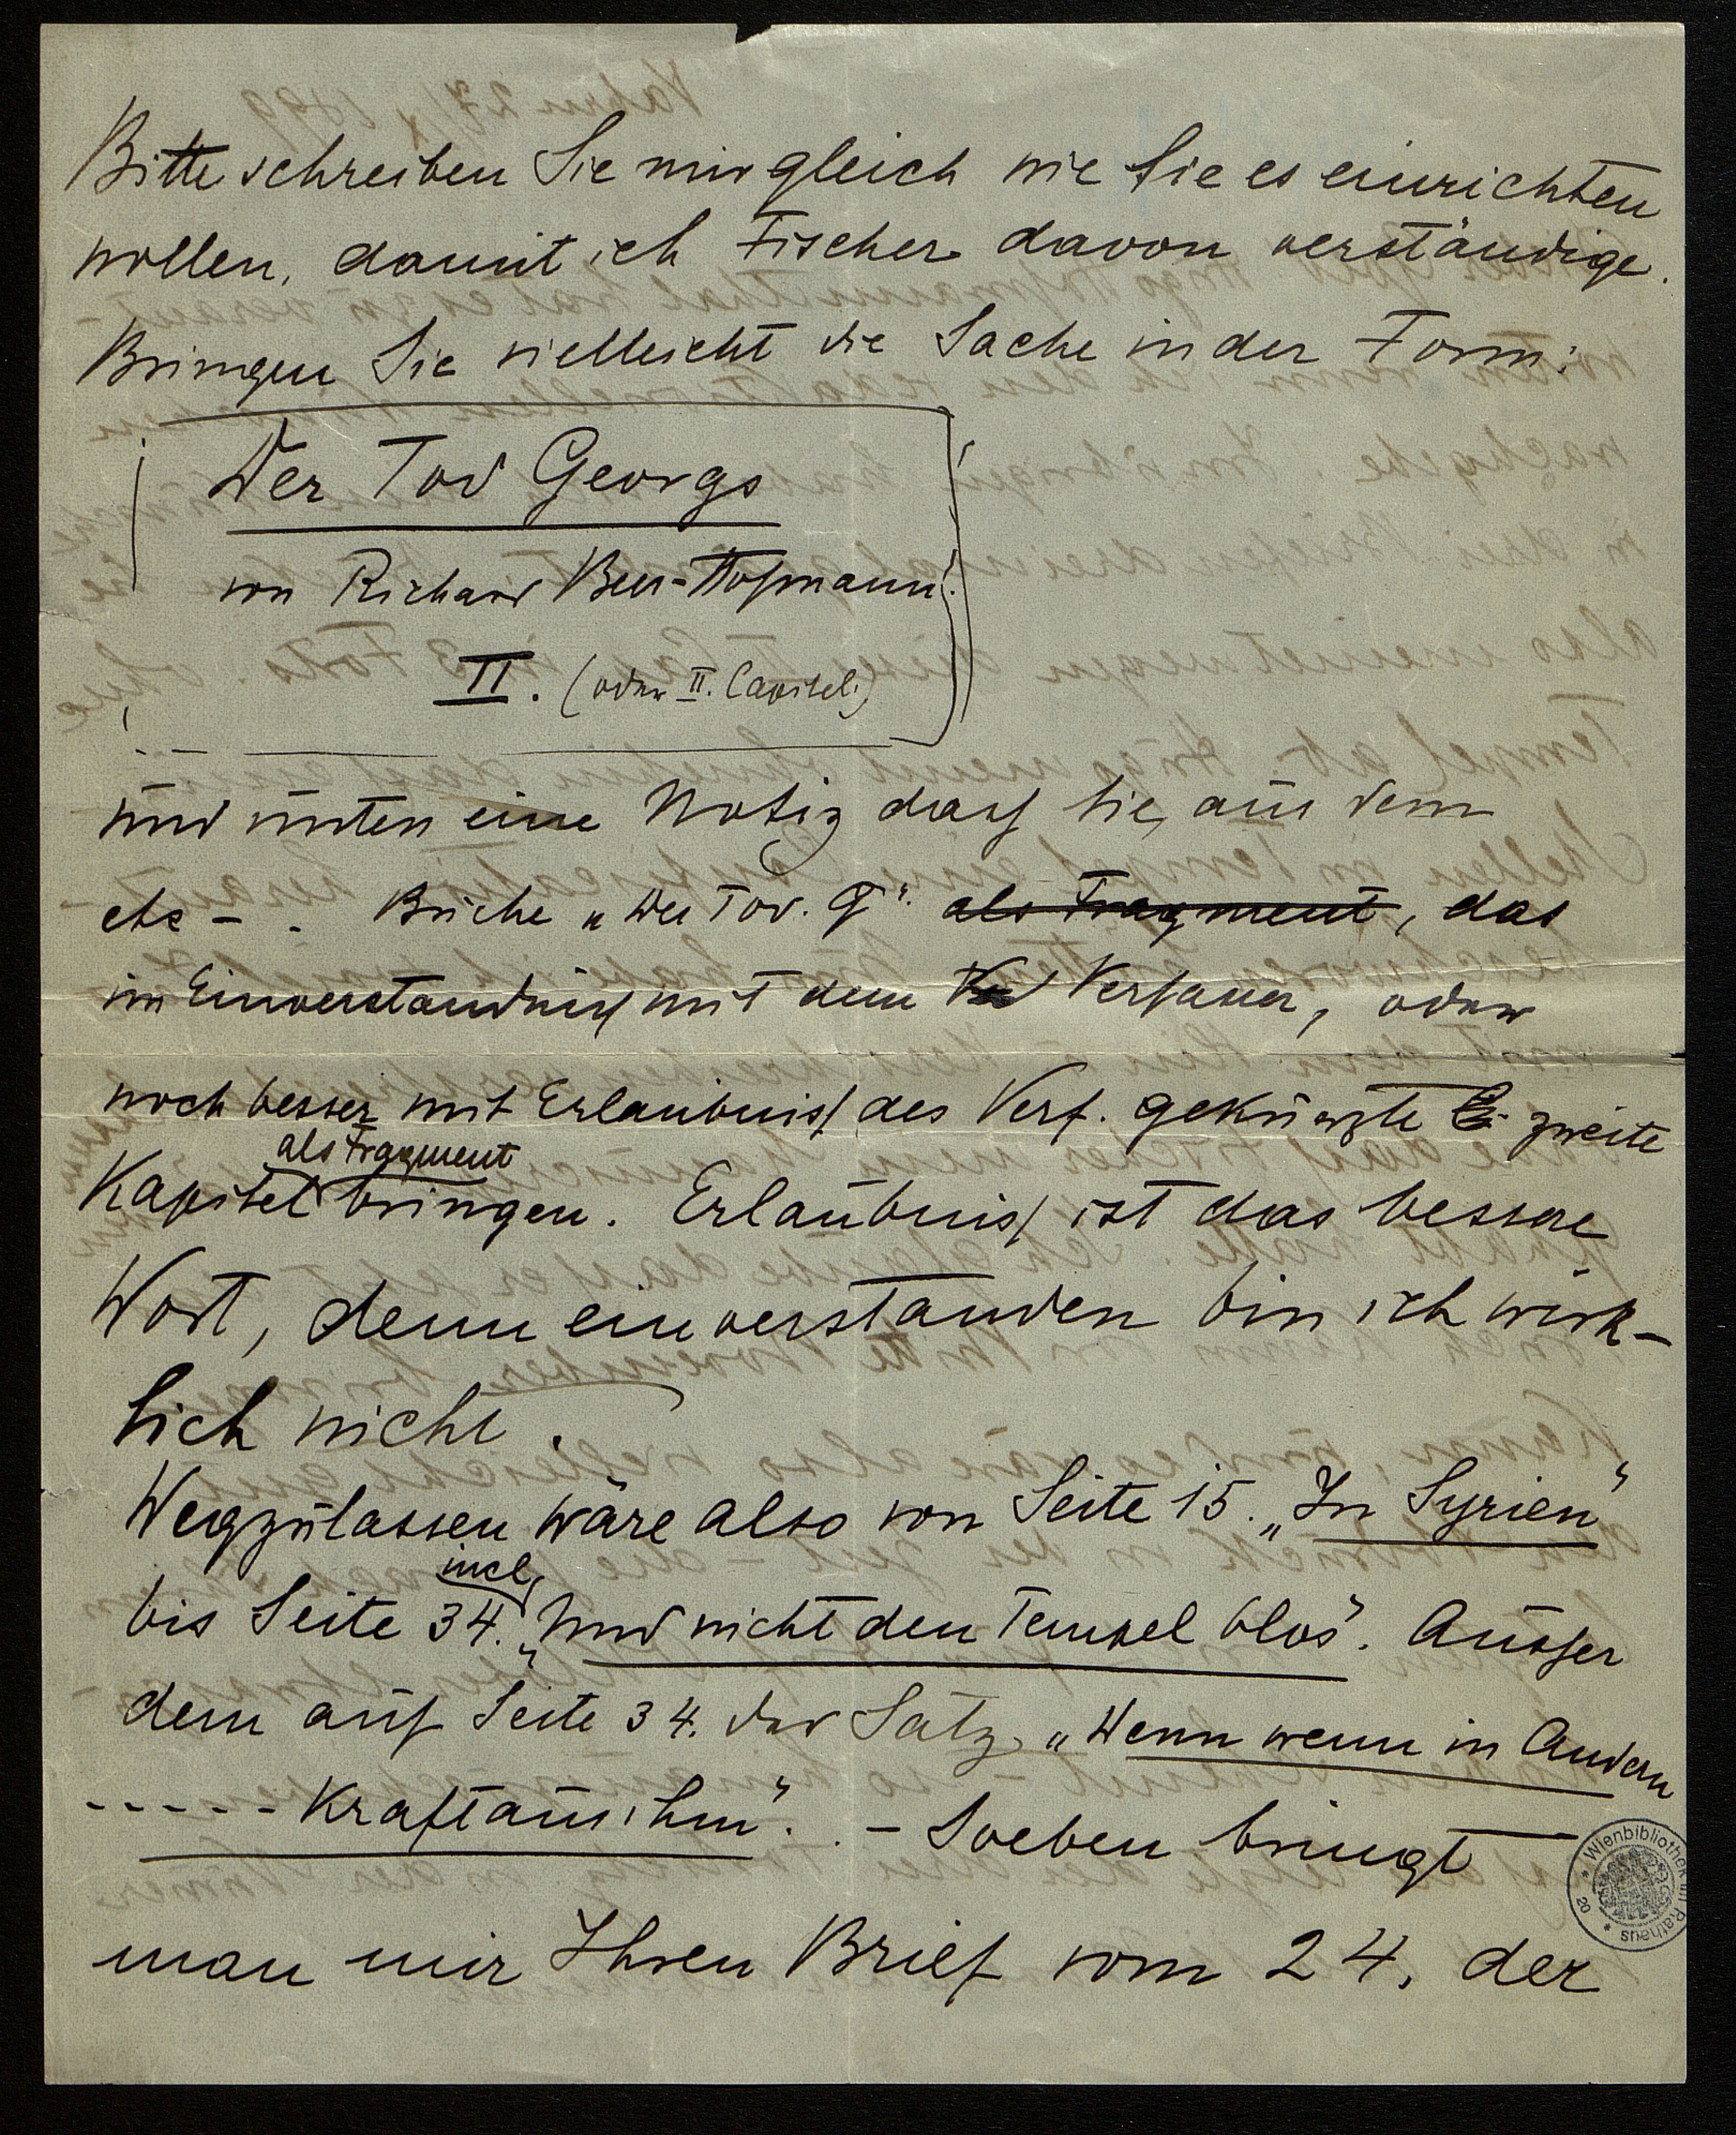 Bitte schreiben Sie mir gleich wie Sie es einrichten
wollen, damit ich Fischer davon verständige.
Bringen Sie vielleicht die Sache in der Form:
Der Tod Georgs
von Richard Beer-Hofmann.
II. (oder II. Capitel.)
und unten eine Notiz dass Sie, aus dem
etc - . Buche „Der Tod. G“. als Fragment, das
im Einverständniss mit dem Verfasser, oder
noch besser mit Erlaubniss des Verf. gekürzte zweite
als Fragment
Kapitel bringen. Erlaubniss ist das bessere
Wort, denn einverstanden bin ich wirk-
lich nicht.
Wegzulassen wäre also von Seite 15. „In Syrien“
incl.
bis Seite 34. „Und nicht den Tempel blos“. Ausser
dem auf Seite 34. der Satz „Wenn wenn in Andern
----- Kraft aus ihm“. . - Soeben bringt
man mir Ihren Brief vom 24. der
Wienbibliothek im Rathaus
20